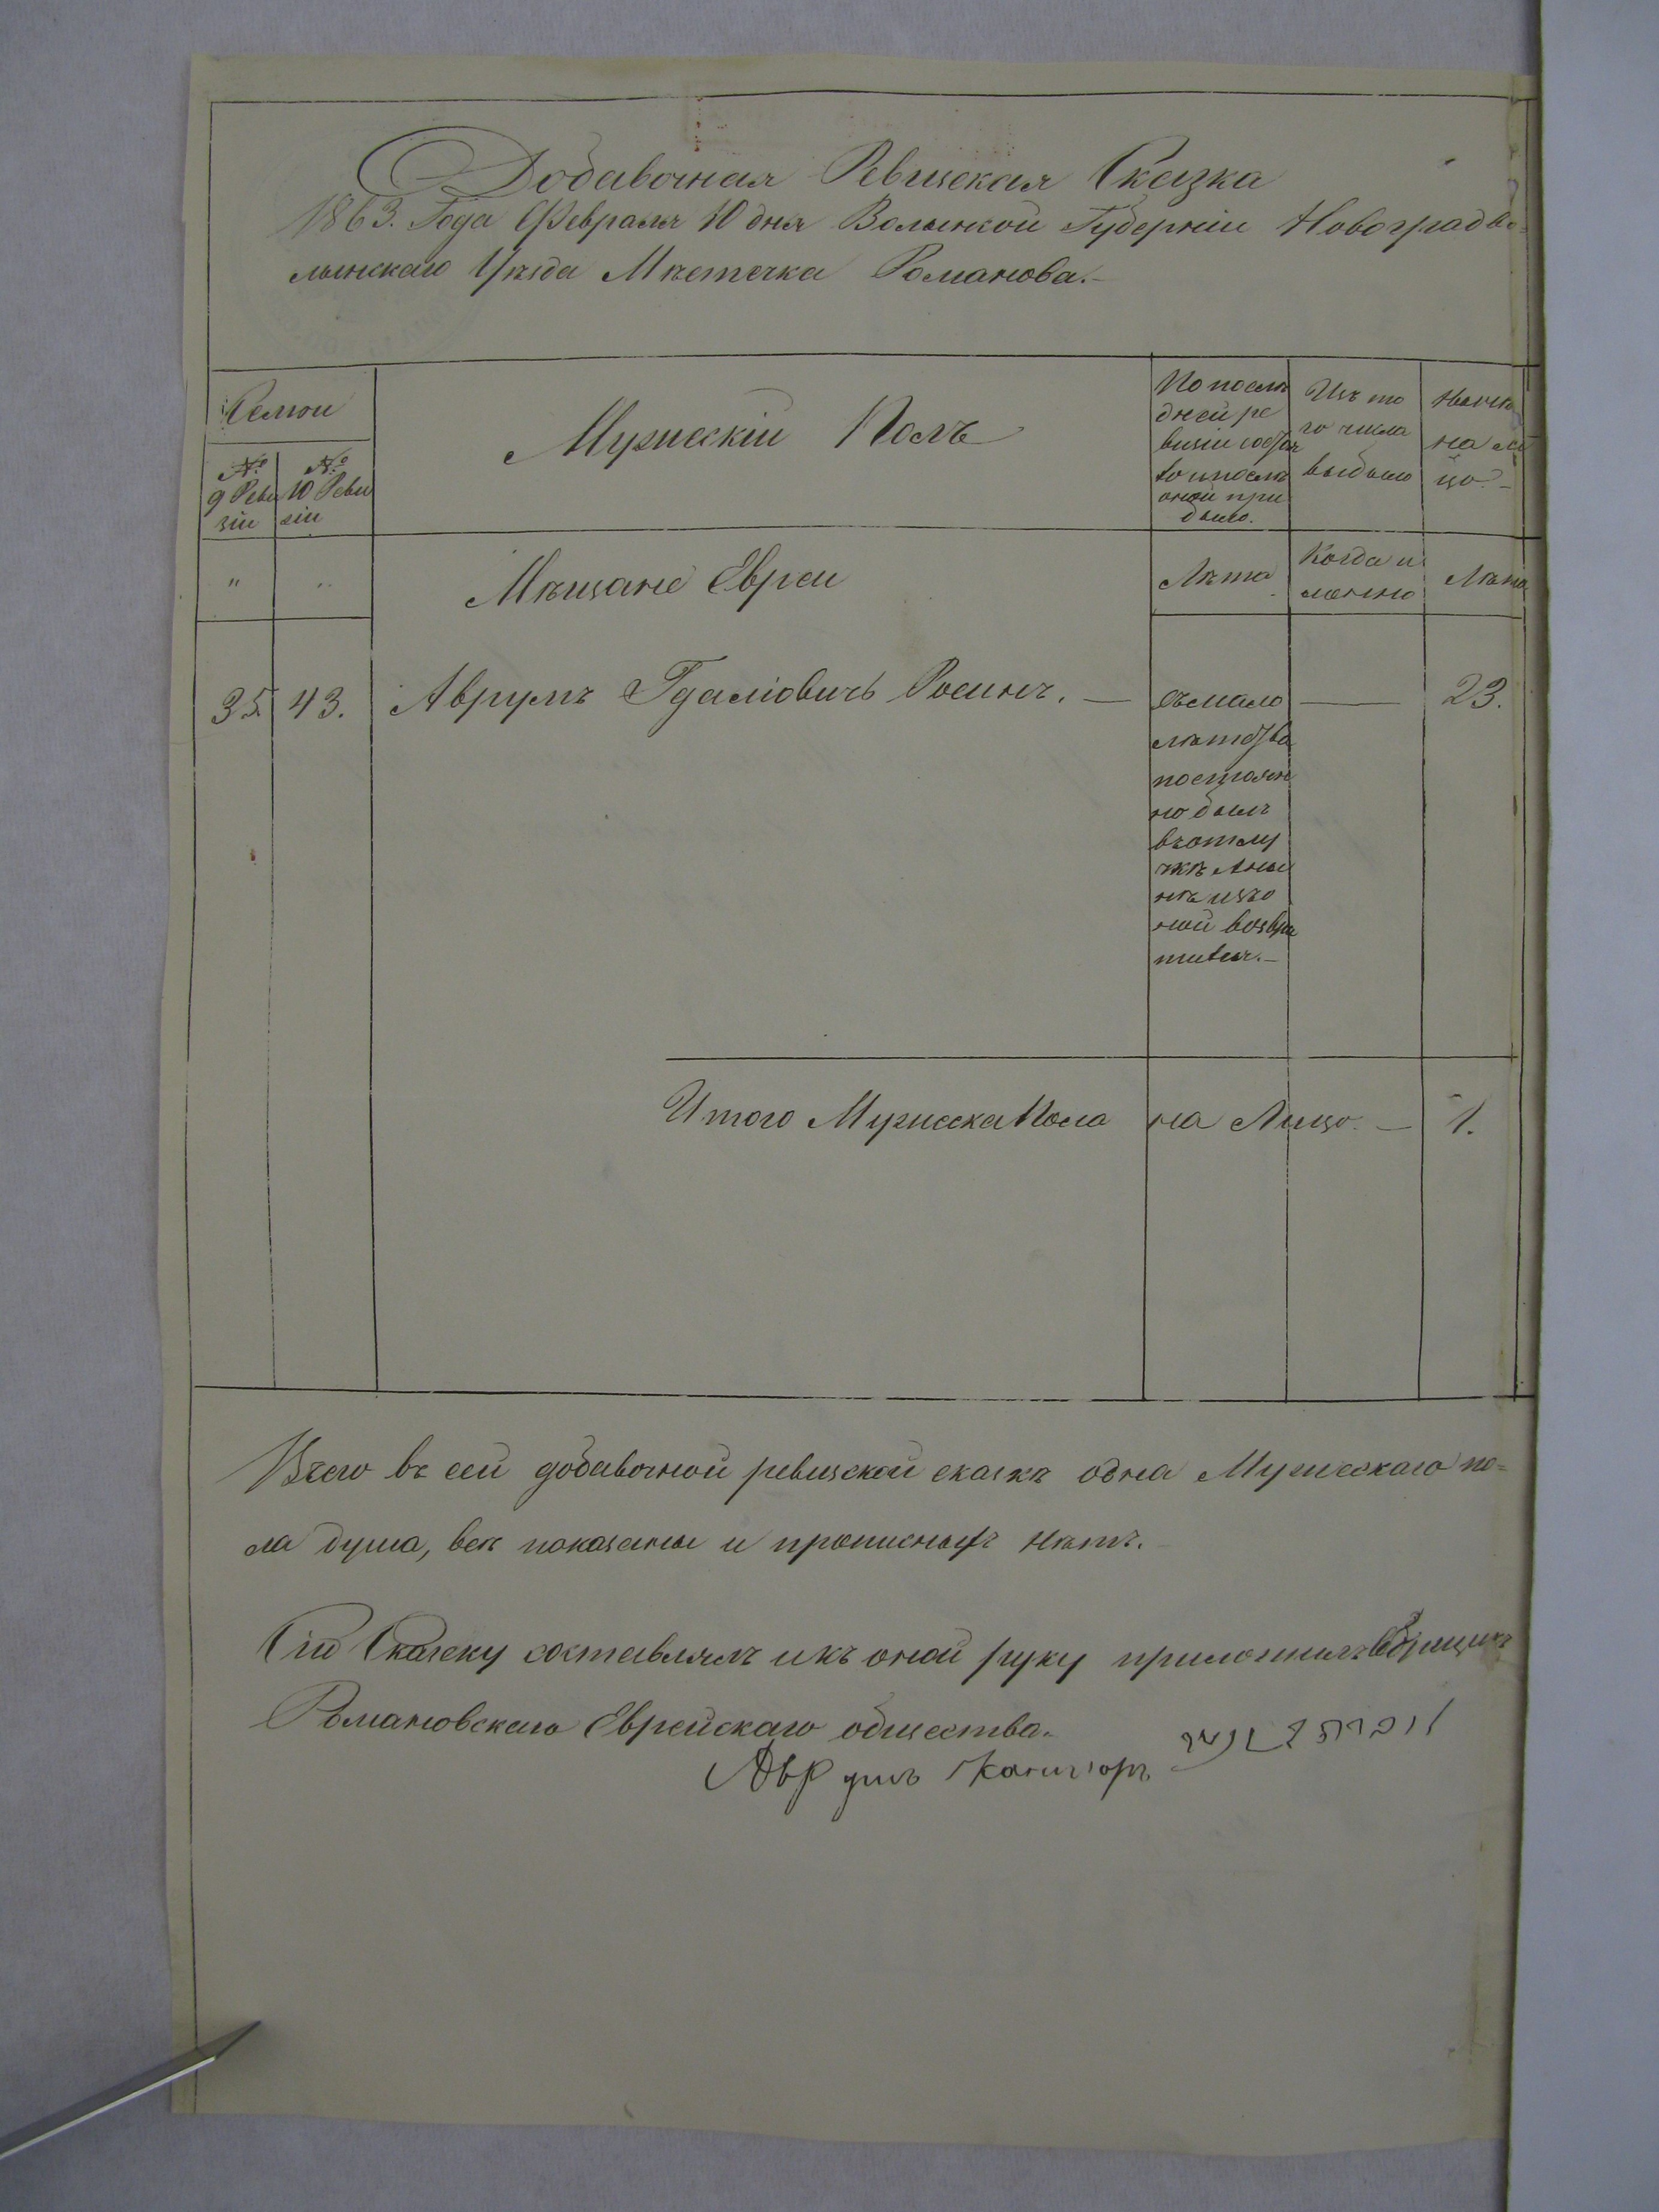 Добавочная Ревизская Сказка
1863. Года Февраля 10 дня Волынской Губерніи Новоградво-
лынскаго Уѣзда Мѣстечка Романова.–
Семьи
№ 9 Реви
зіи
№ 10 Реви
зіи
Мужескій Полъ
По послѣ
дней ре
визіи состоя
ло и послѣ
оной при
было.
Изъ то
го числа
выбыло
Нынѣ
на ли
цо.–
" "
Мѣщане Евреи
Лѣта
Когда и
менно
Лѣта
35. 43. Аврумъ Гдаліовичъ Росинъ. — — 23.
съ мало
лѣтства
постоян
но былъ
въ отлу
чкѣ а ны
нѣ изъ о
ной возвра
тился.–
Итого Мужеска Пола на Лицо. – 1.
Всего въ сей добавочной ревизской сказкѣ одна Мужескаго по-
ла душа, всѣ показаны и прописныхъ нѣтъ.
Сію Сказску составлялъ и къ оной руку приложилъ Сборщикъ
Романовскаго Еврейскаго общества.
Аврумъ